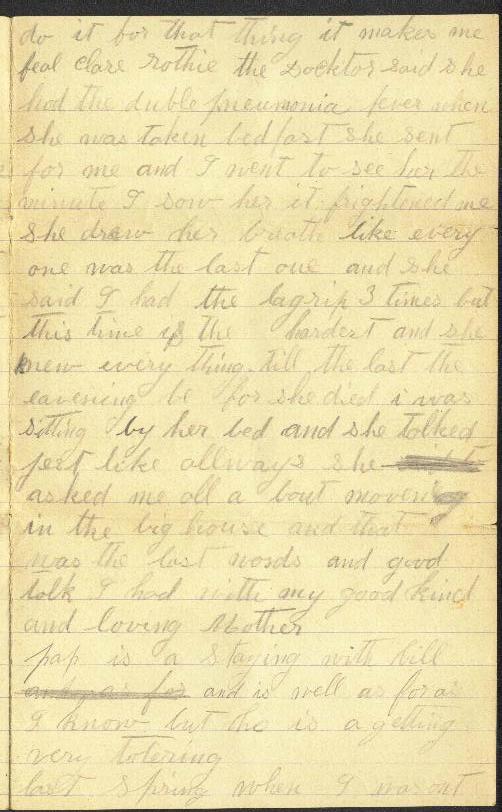 do it for that thing it makes me
feal clare rothie the Docktor said she
had the duble pneumonia fever when
she was taken bedfast she sent
for me and I went to see her the
minute I sow her it frightened me
she drew her breath like every
one was the last one and she
said I had the lagrip 3 times but
this time is the hardest and she
knew every thing till the last the
eavening be for she died i was
sitting by her bed and she talked
jest like allways she
asked me all a bout movening
in the big house and that
was the last words and good
talk I had with my good kind
and loving Mother
pap is a staying with bill
and is well as for as
I know but he is a getting
very totering
last spring when I was out